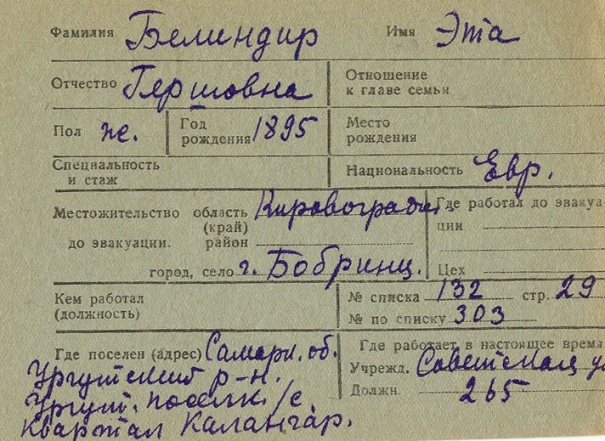 Фамилия Белиндир Имя Эта
Отчество Гершовна Отношение к главе семьи
Пол же. Год рождения 1895 Место рождения
Специальность и стаж Национальность Евр.
Местожительство область (край) Кировоградск. Где работал до эвакуа-
до эвакуации. район ции
город, село г. Бобринц. Цех
Кем работал (должность) № списка 132 стр. 29
№ по списку 303
Где поселен (адрес) Самарк. об. Где работает в настоящее время
Ургутский р-н. Учрежд. Советская ул
Ургут. поселк. /с. Должн. 265
Квартал Калангар.